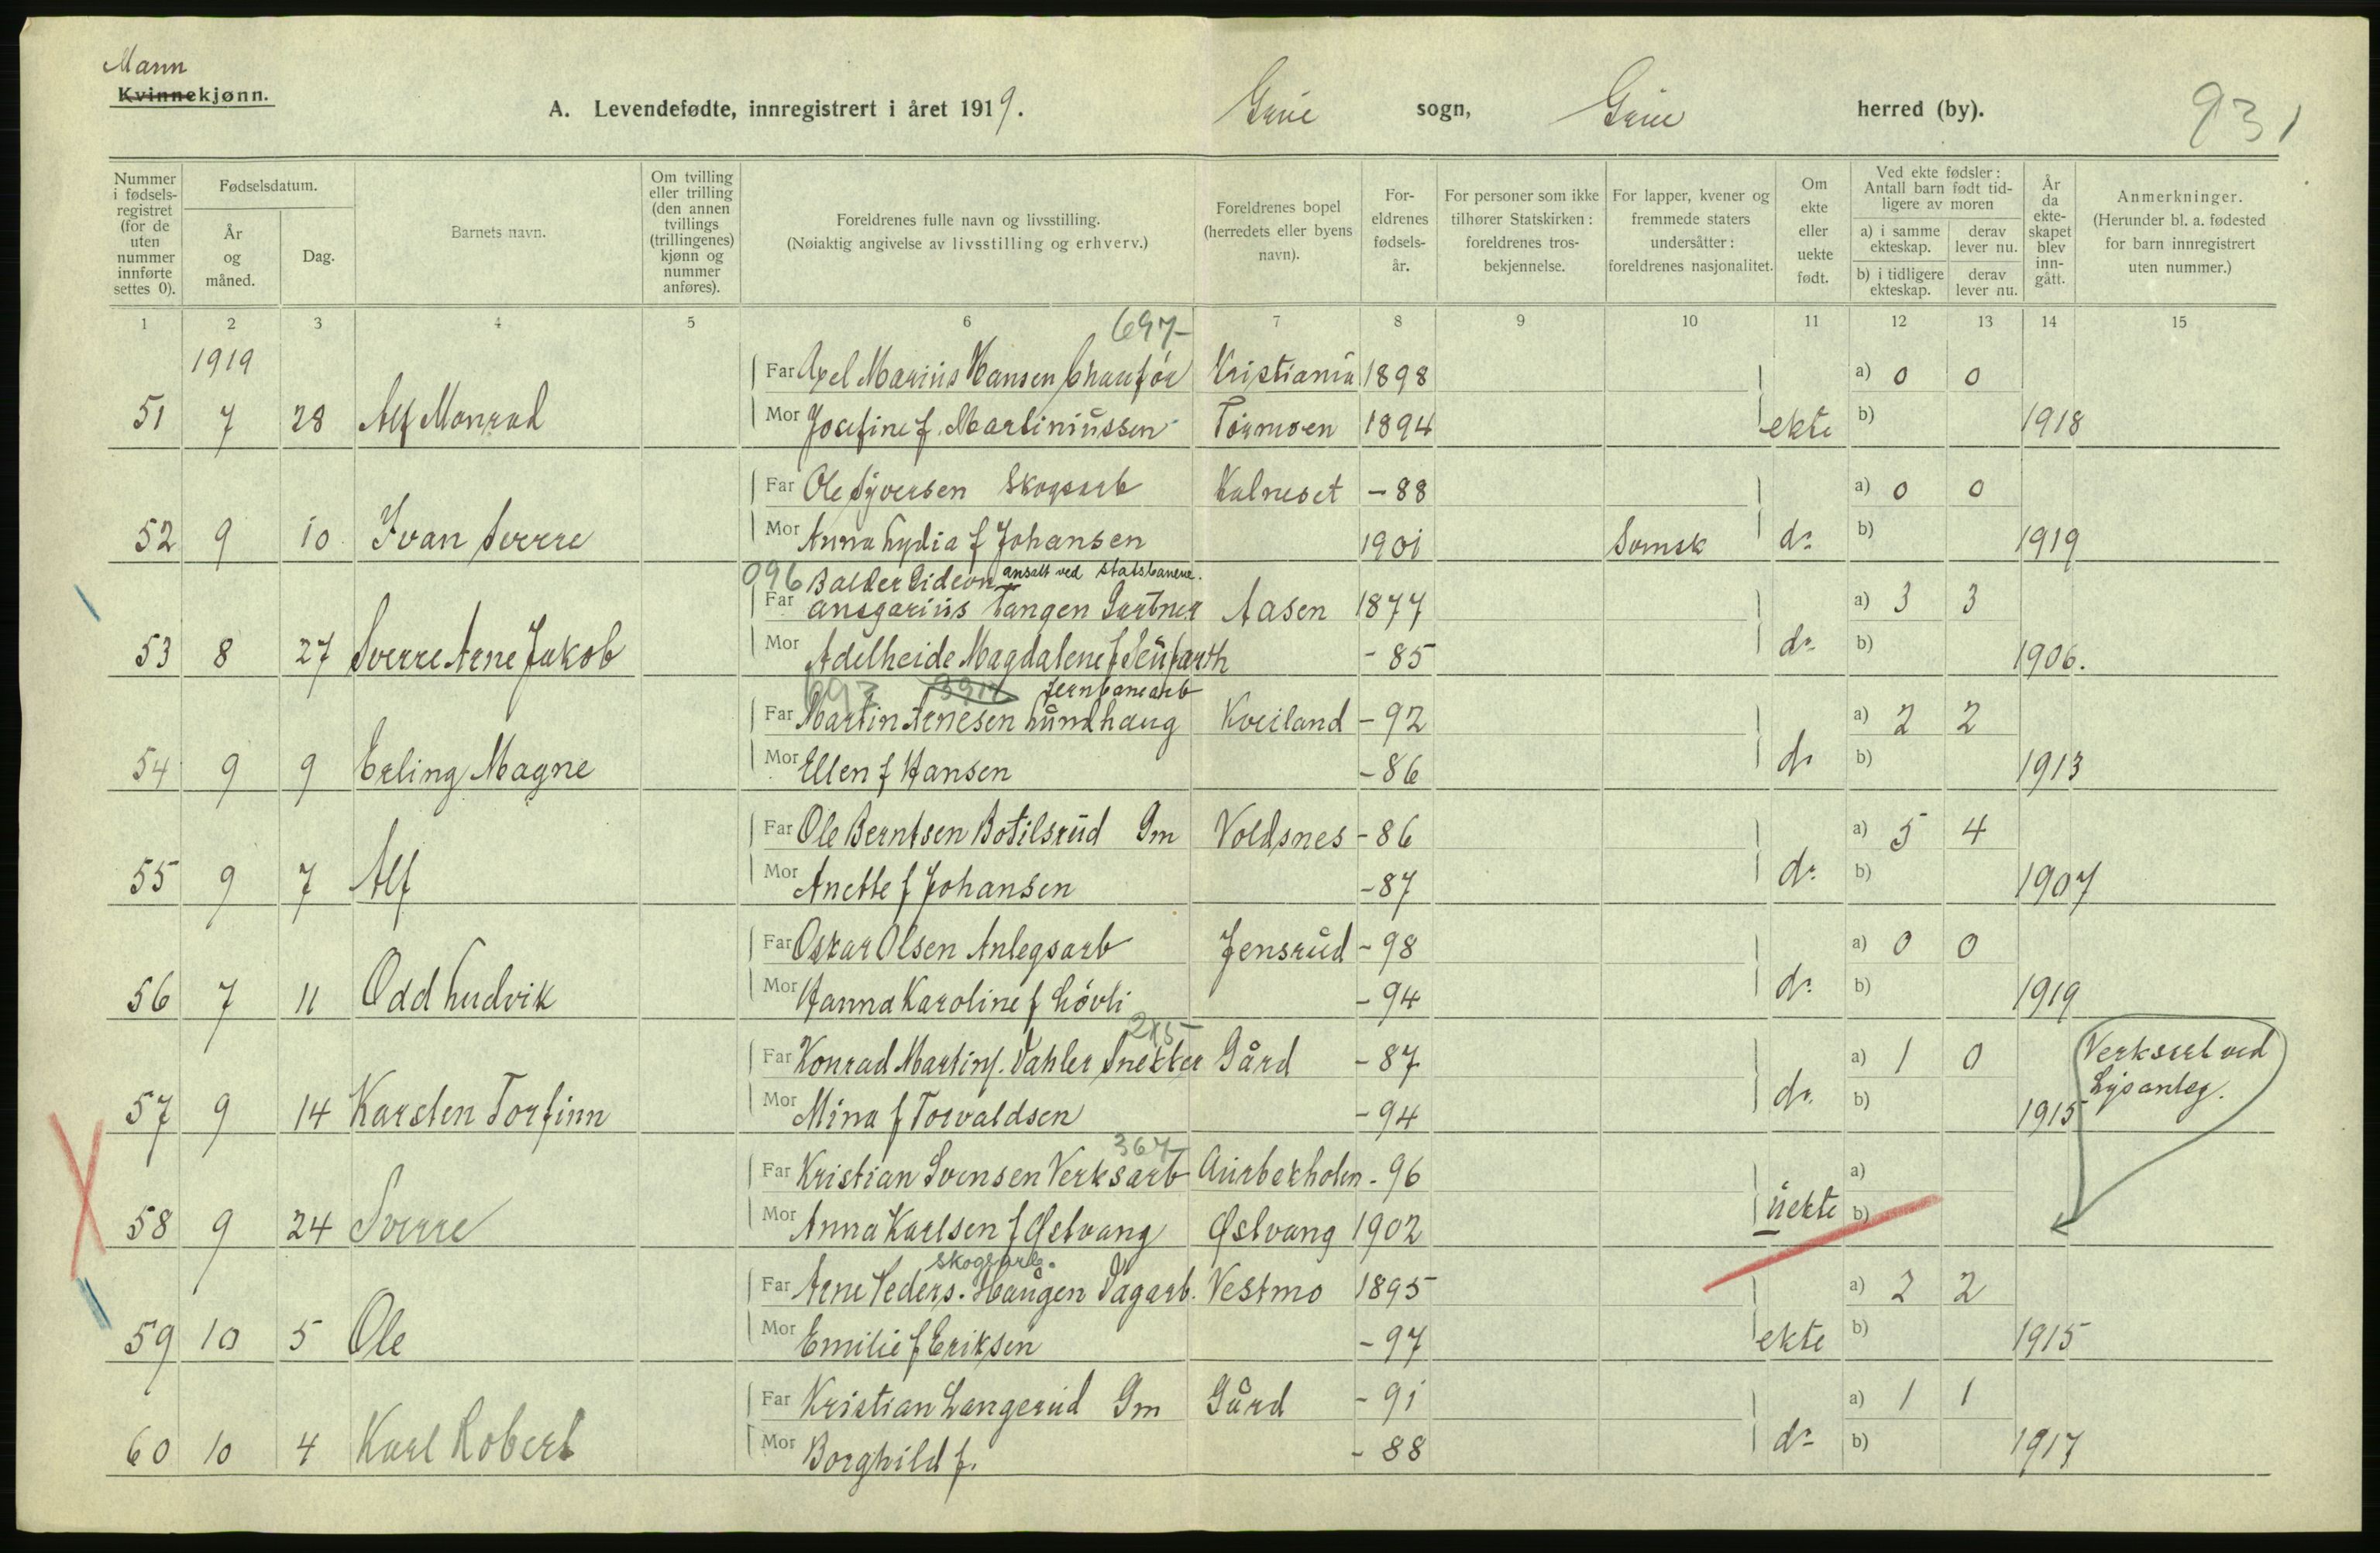 Mann
Kvinnekjønn.
A. Levendefødte, innregistrert i året 1919. Grue sogn, Grue herred (by). 931
Nummer i fødselsregistret (for de uten nummer innførte settes 0).
Fødselsdatum.
År og måned.
Dag.
Barnets navn.
Om tvilling eller trilling (den annen tvillings (trillingenes) kjønn og nummer anføres).
Foreldrenes fulle navn og livsstilling.
(Nøiaktig angivelse av livsstilling og erhverv.)
Foreldrenes bopel (herredets eller byens navn).
Foreldrenes fødselsår.
For personer som ikke tilhører Statskirken: foreldrenes trosbekjennelse.
For lapper, kvener og fremmede staters undersåtter: foreldrenes nasjonalitet.
Om ekte eller uekte født.
Ved ekte fødsler: Antall barn født tidligere av moren
a) i samme ekteskap. derav lever nu.
b) i tidligere ekteskap. derav lever nu.
År da ekteskapet blev inngått.
Anmerkninger.
(Herunder bl. a. fødested for barn innregistrert uten nummer.)
1 2 3 4 5 6 7 8 9 10 11 12 13 14 15
1919
697-
Far Axel Marius Hansen Chaufør Kristiania 1898 a) 0 0
51 7 28 Alf Monrad Mor Josefine f. Martiniussen Tormoen 1894 ekte b) 1918
Far Ole Syversen Skogsarb Kalneset - 88 a) 0 0
52 9 10 Ivan Sverre Mor Anna Lydia f Johansen 1901 Svensk do b) 1919
096 Balder Gideon ansatt ved statsbanene.
Far Ansgarius Tangen Gartner Aasen 1877 a) 3 3
53 8 27 Sverre Arne Jakob Mor Adelheide Magdalene f Seufarth - 85 do b) 1906.
697 jernbanearb
Far Martin Arnesen Lundhaug Kveiland - 92 a) 2 2
54 9 9 Erling Magne Mor Ellen f Hansen - 86 do b) 1913
Far Ole Berntsen Botilsrud Gm Voldsnes - 86 a) 5 4
55 9 7 Alf Mor Anette f Johansen - 87 do b) 1907
Far Oskar Olsen Anlegsarb Jensrud - 98 a) 0 0
56 7 11 Odd Ludvik Mor Hanna Karoline f Løvli - 94 do b) 1919
215
Far Konrad Martins. Dahler Snekker Gård - 87 a) 1 0 Verksarb ved
Lysanleg.
57 9 14 Karsten Torfinn Mor Mina f Torvaldsen - 94 do b) 1915
367-
Far Kristian Svensen Verksarb Aurbekholen - 96 a)
58 9 24 Sverre Mor Anna Karlsen f Østvang Østvang 1902 uekte b)
Skogsarb.
Far Arne Peders. Haugen Dagarb. Vestmo 1895 a) 2 2
59 10 5 Ole Mor Emilie f Eriksen - 97 ekte b) 1915
Far Kristian Langerud Gm Gård - 91 a) 1 1
60 10 4 Karl Robert Mor Borghild f. - 88 do b) 1917